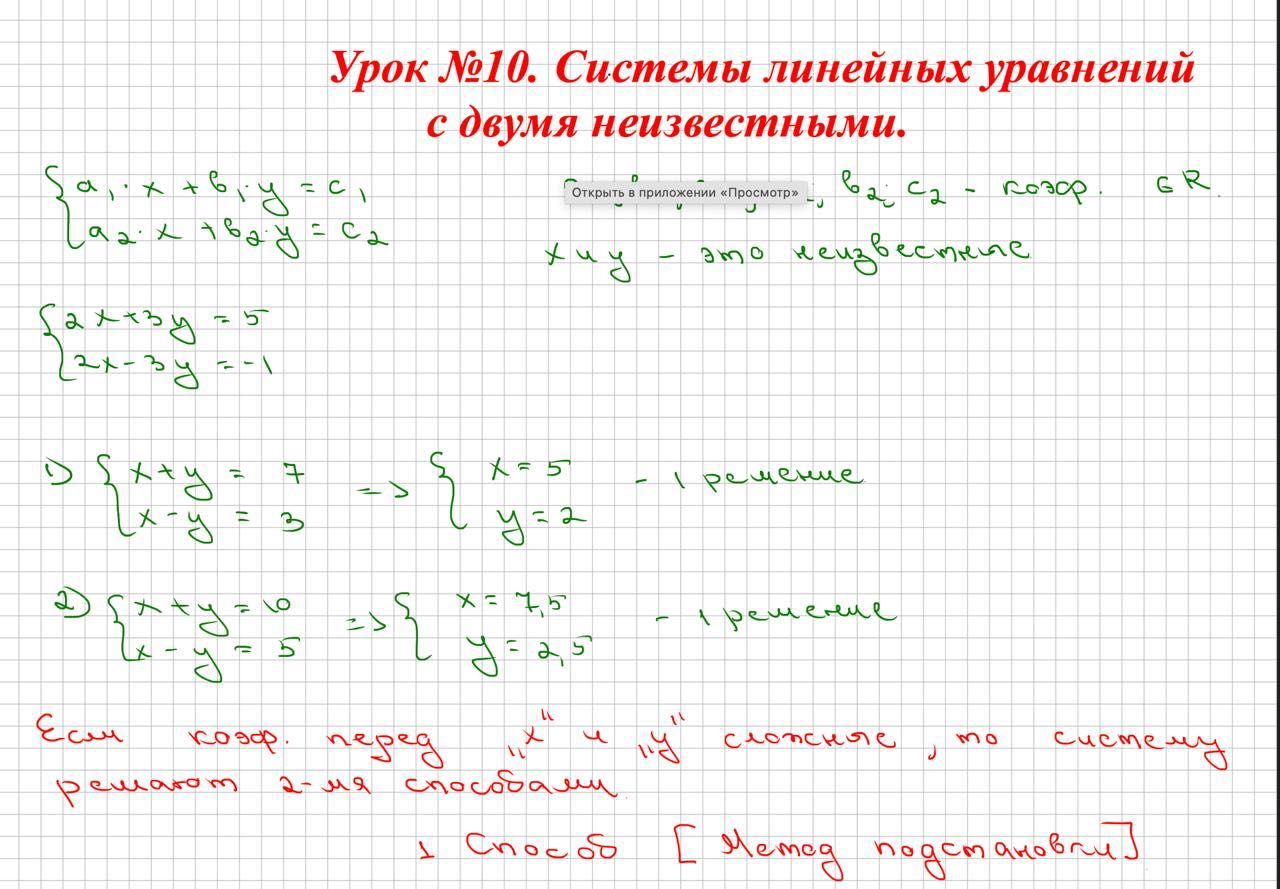 Урок №10. Системы линейных уравнений
с двумя неизвестными.
{ a₁·x + b₁·y = c₁
a₂·x + b₂·y = c₂
Открыть в приложении «Просмотр» b₂; c₂ - коэф. ∈ R.
x и y - это неизвестные
{ 2x+3y = 5
2x-3y = -1
1) { x+y = 7 => { x = 5 - 1 решение
x-y = 3 y = 2
2) { x+y = 10 => { x = 7,5 - 1 решение
x-y = 5 y = 2,5
Если коэф. перед „x" и „y" сложные, то систему
решают 2-мя способами.
1 Способ [Метод подстановки]